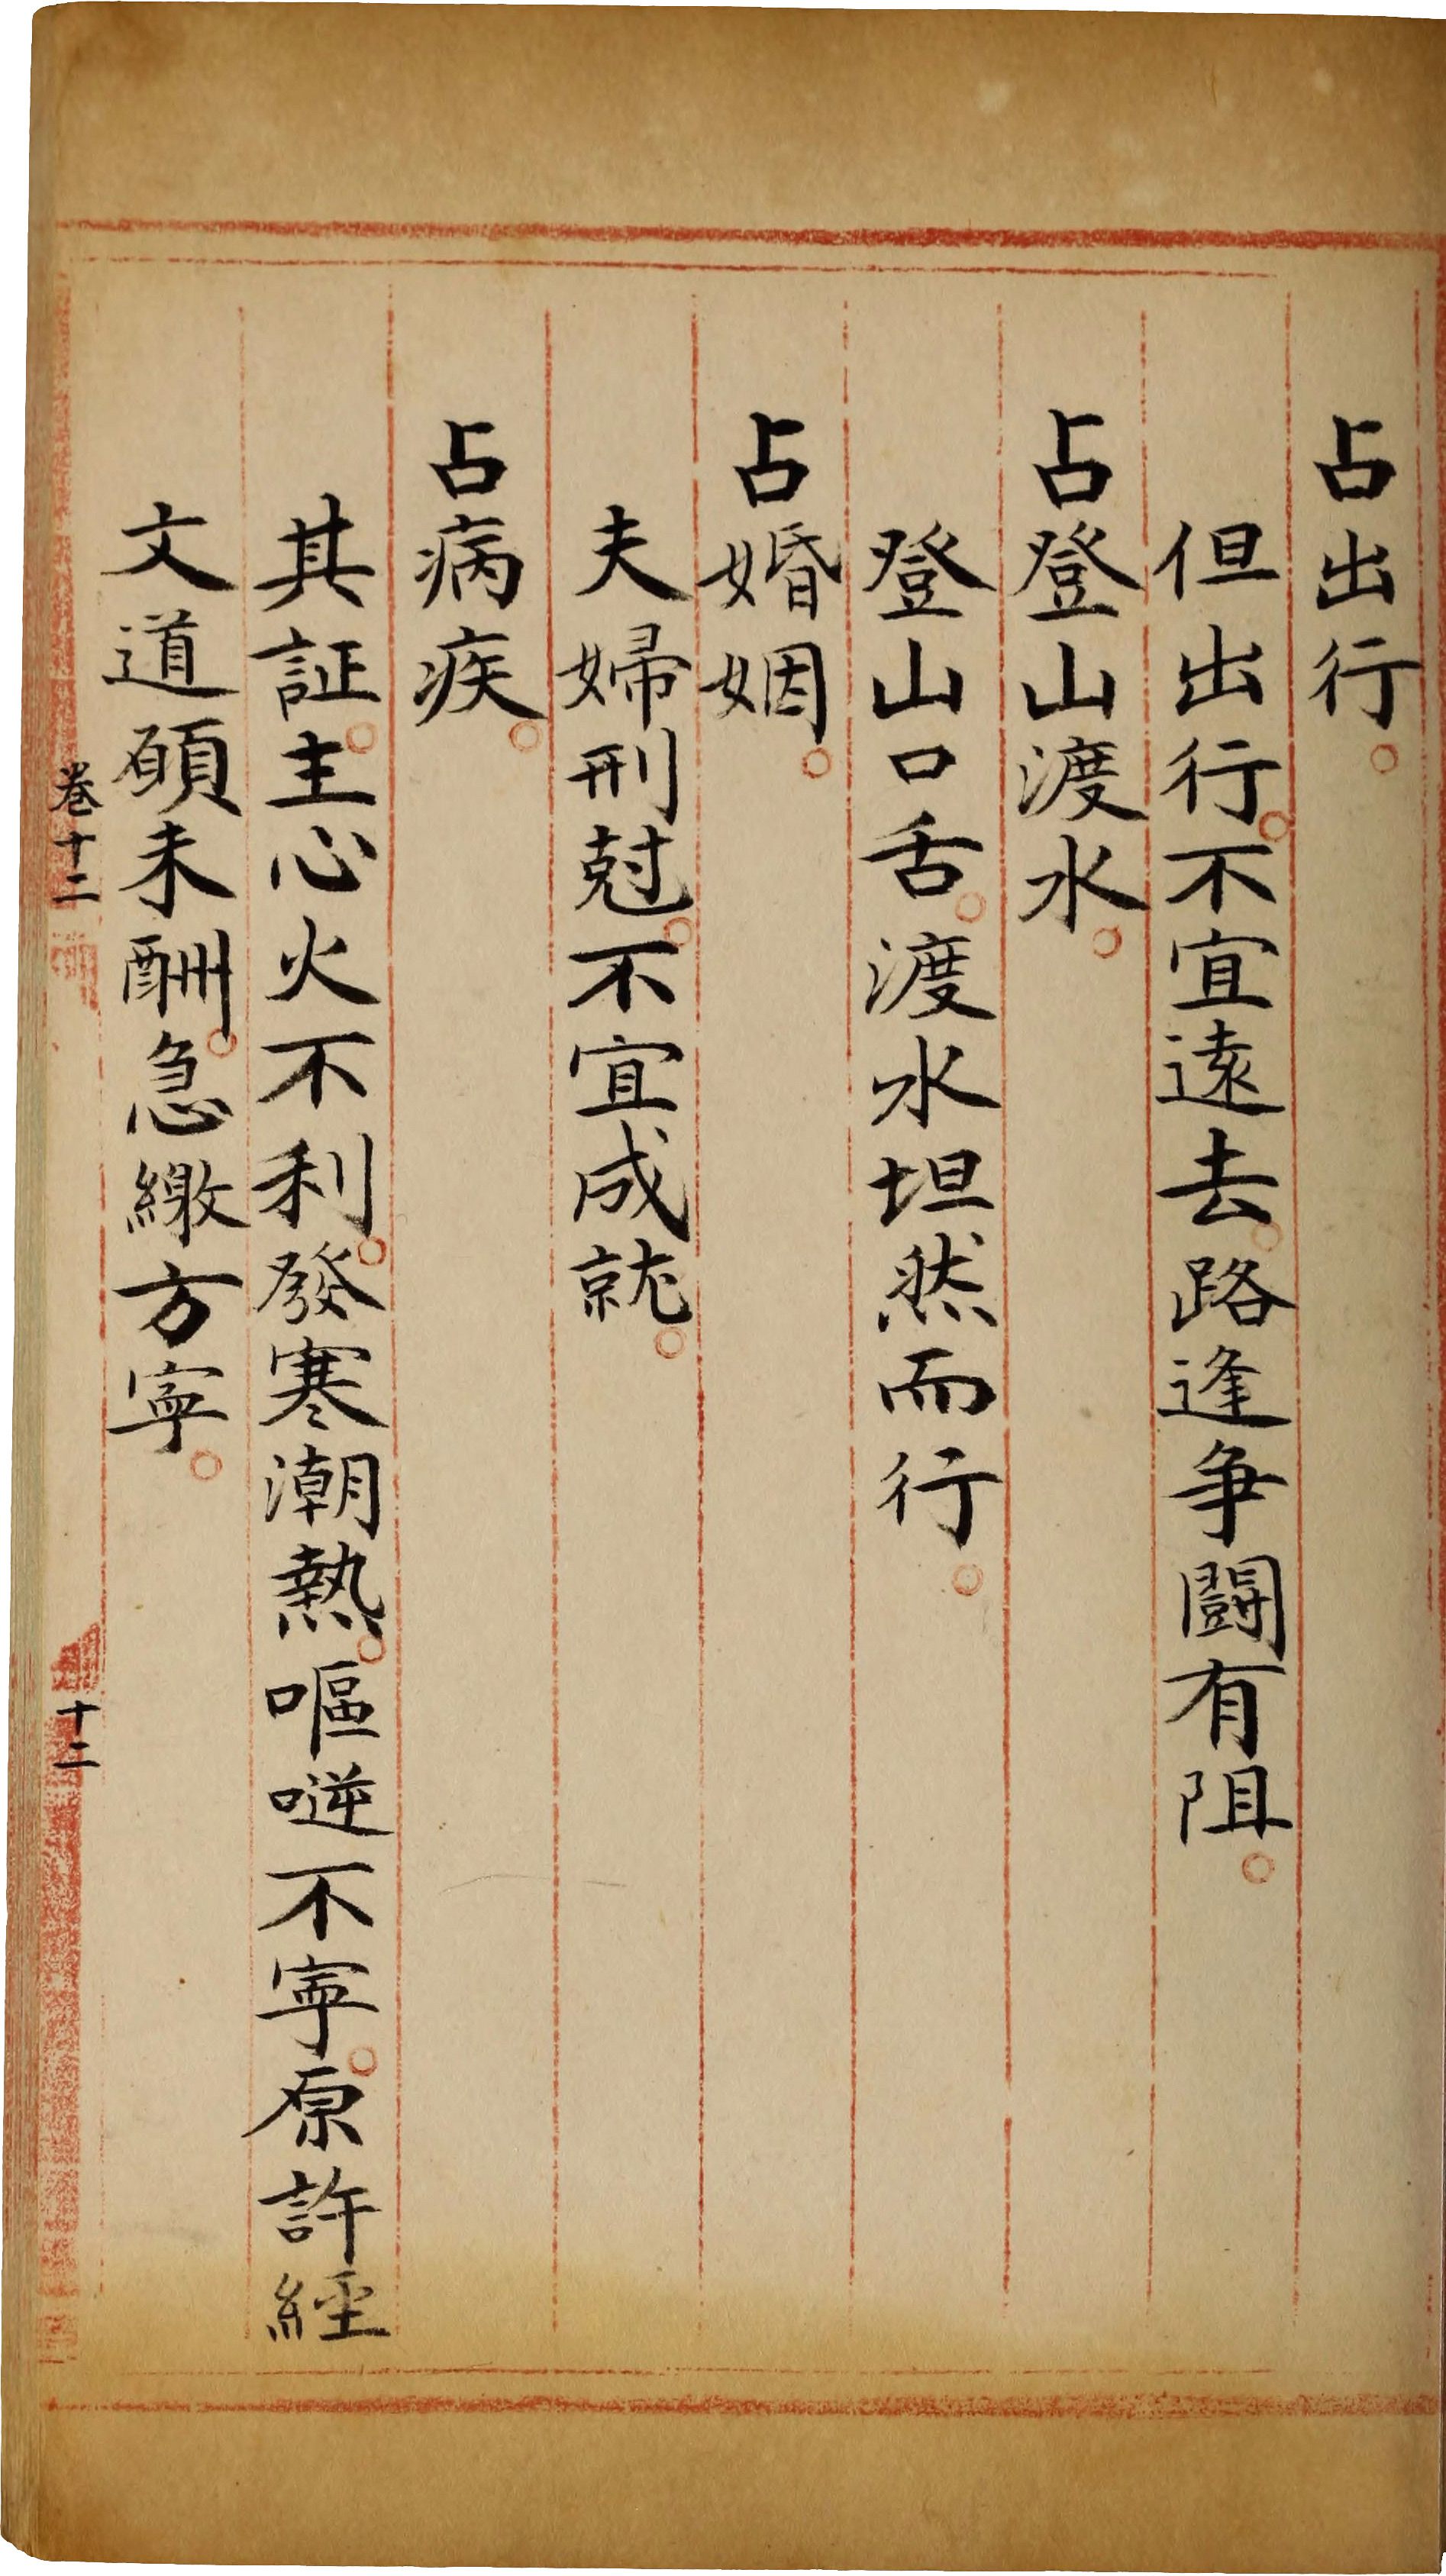 占出行。
但出行。不宜遠去。路逢争鬪有阻。
占登山渡水。
登山口舌。渡水坦然而行。
占婚姻。
夫婦刑尅。不宜成就。
占病疾。
其証。主心火不利。發寒潮熱。嘔𠹌不寧。原許經
文道願未酬。急繳方寧。
卷十二
十二